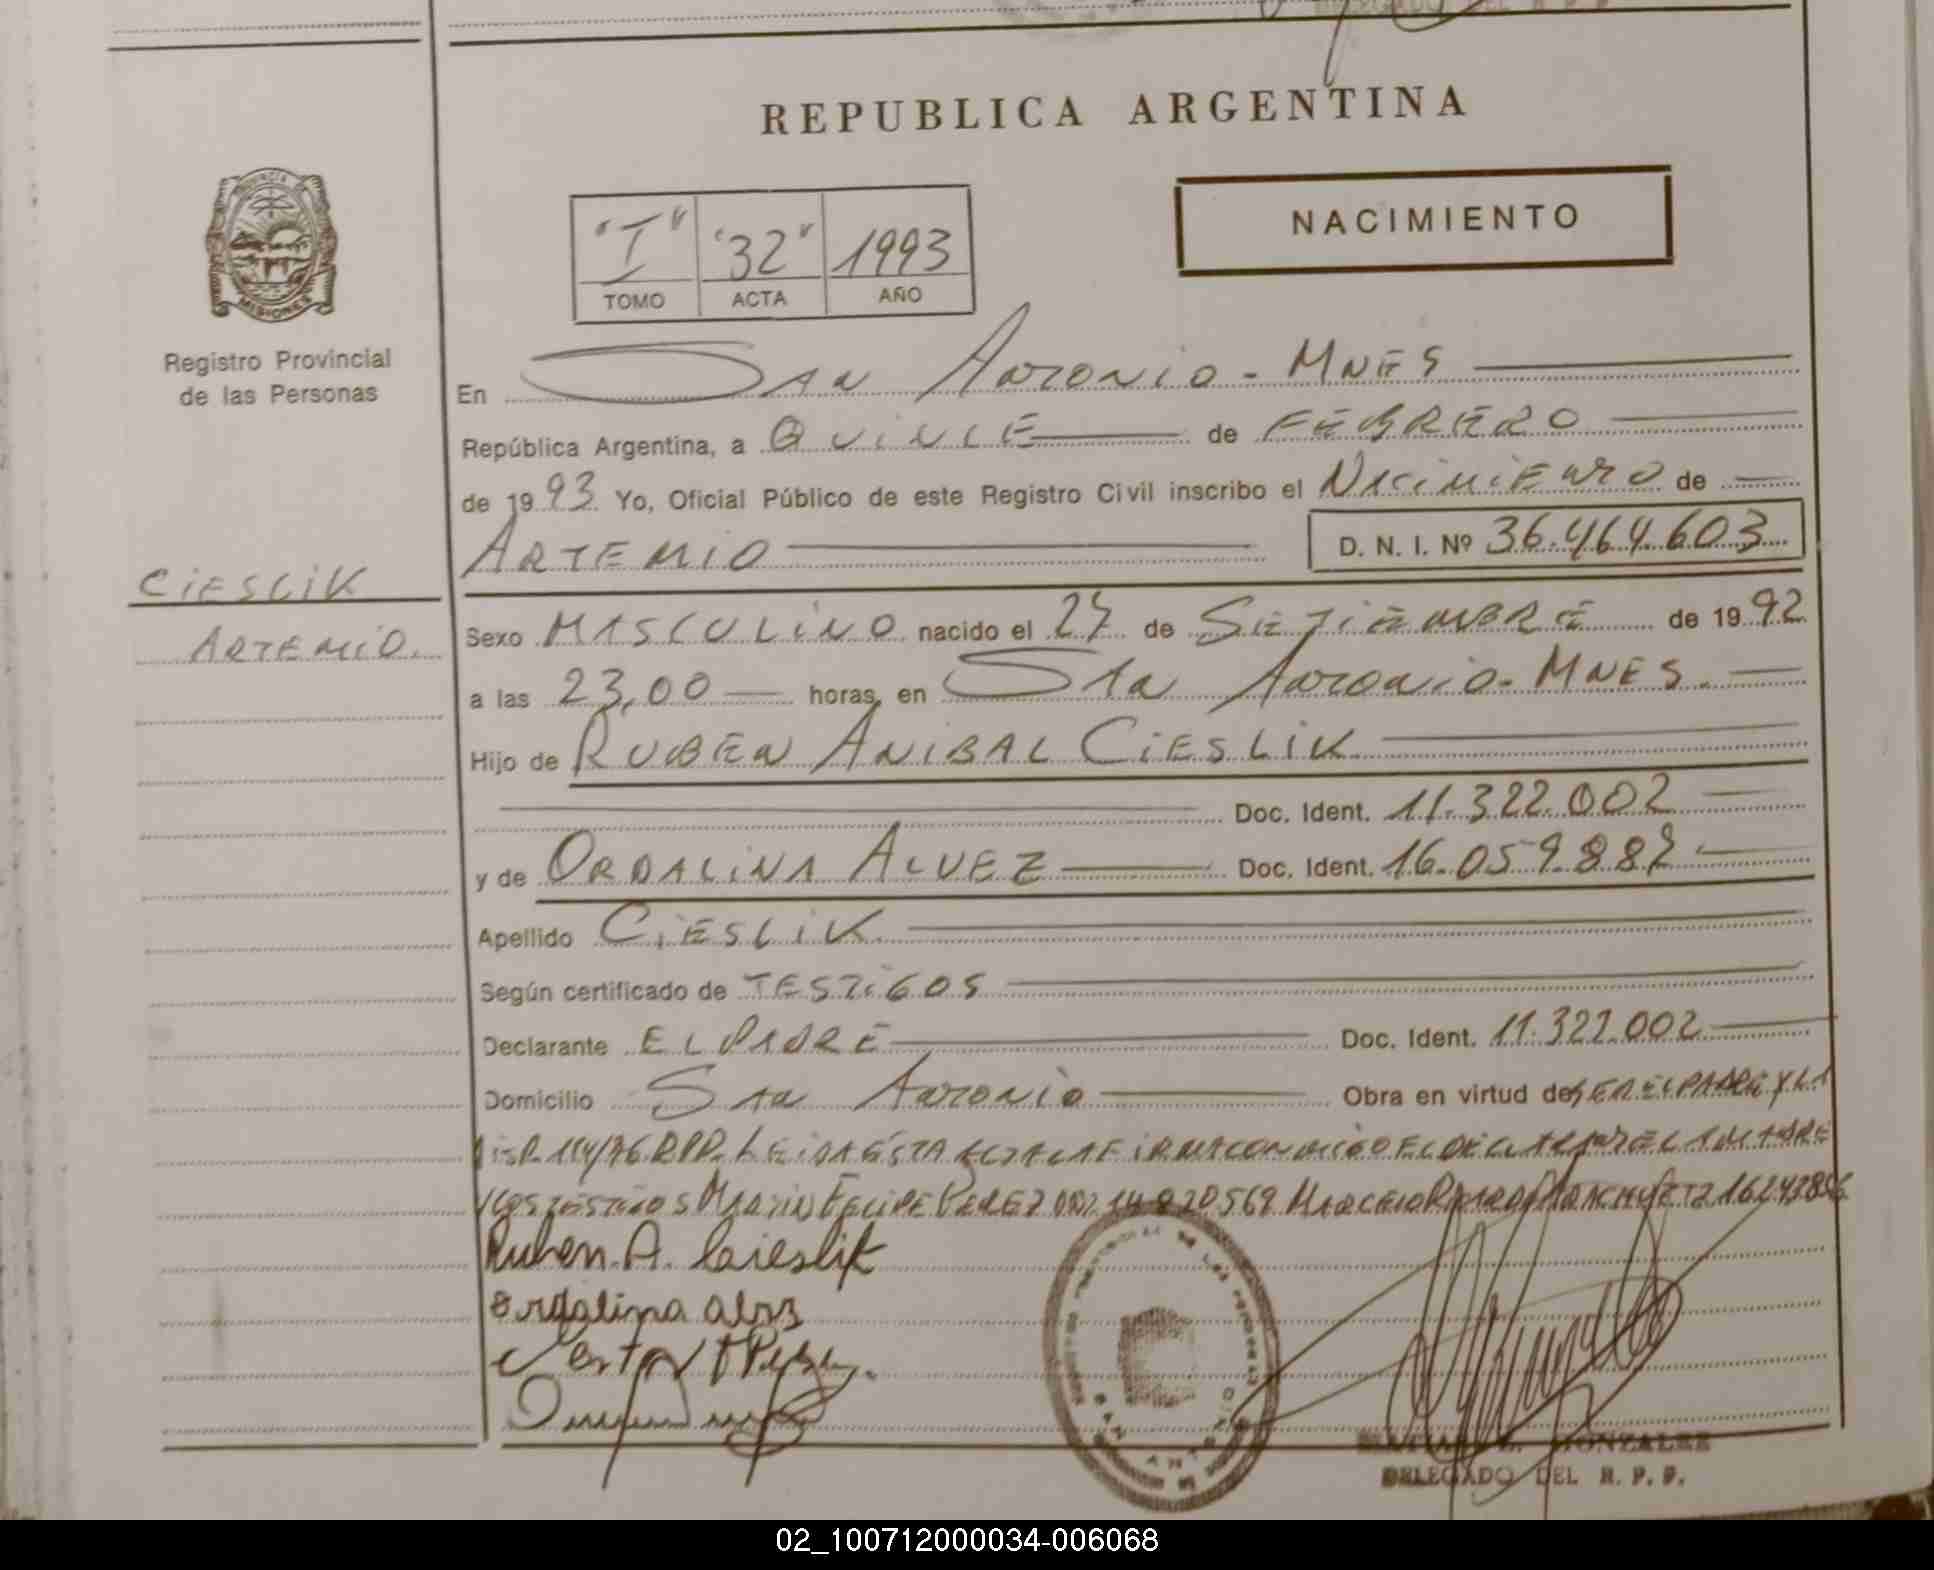 REPUBLICA ARGENTINA
NACIMIENTO
"I" "32" 1993
TOMO ACTA AÑO
PROVINCIA DE
MISIONES
Registro Provincial
de las Personas
CiESLiK
ARTEMiO.
En SAN ANTONiO - MNES
República Argentina, a QUiNCE de FEBRERO
de 1993 Yo, Oficial Público de este Registro Civil inscribo el NACiMiENTO de
ARTEMiO D. N. I. Nº 36.464.603
Sexo MASCULiNO nacido el 27 de SETiEMBRE de 1992
a las 23,00 horas, en SAN ANTONiO - MNES.
Hijo de RUBEN ANiBAL CiESLiK
Doc. Ident. 11.322.002
y de ORDALiNA ALVEZ Doc. Ident. 16.059.882
Apellido CiESLiK
Según certificado de TESTiGOS
Declarante EL PADRE Doc. Ident. 11.322.002
Domicilio SAN ANTONiO Obra en virtud de SER EL PADRE Y LA
DiSP. 114/76 RPP. LEiDA ESTA ACTA LA FiRMA CONMiGO EL DECLARANTE LA MADRE
Y LOS TESTiGOS PEREZ DNI 14.820.569 MARCELO
Ruben. A. Cieslik
ordalina
GONZALEZ
DELEGADO DEL R. P. P.
02_100712000034-006068